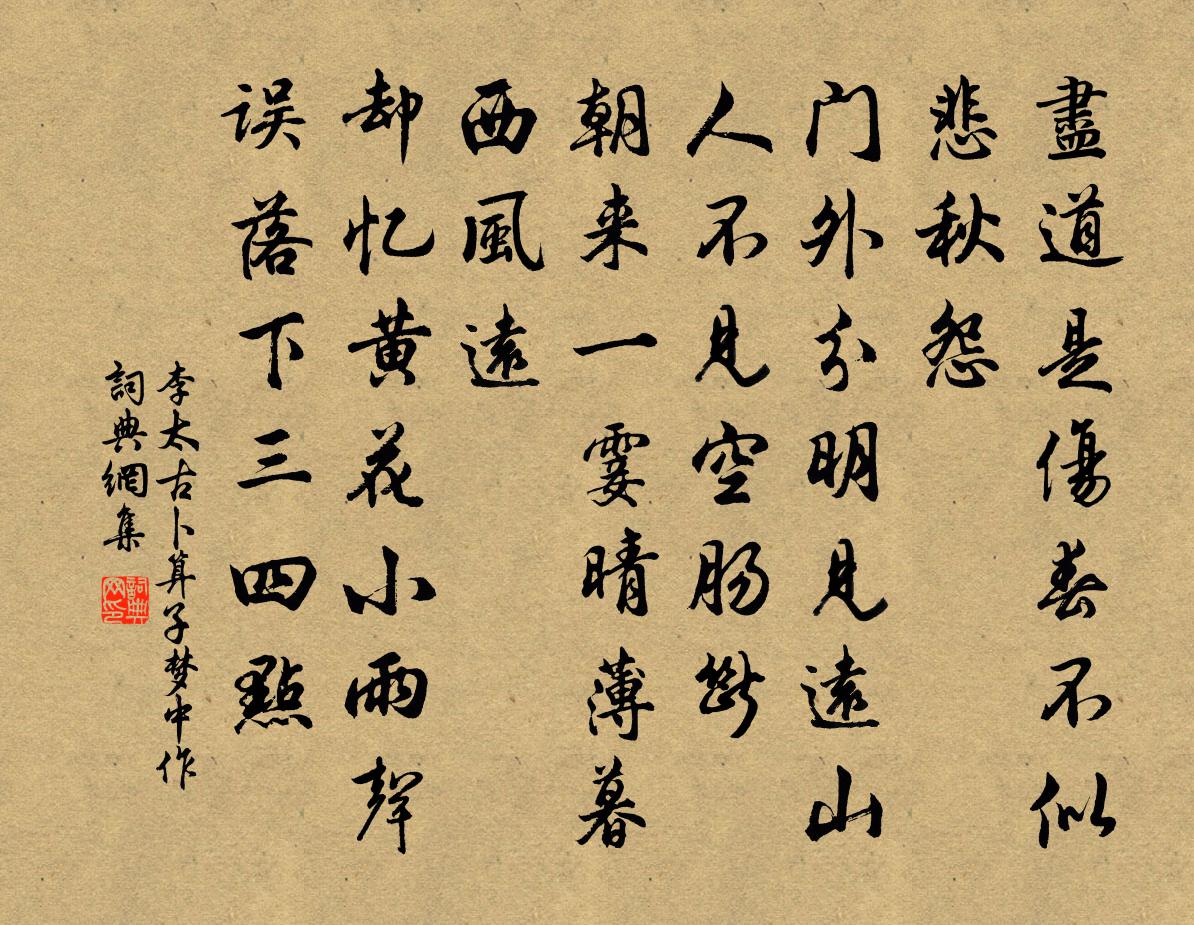 盡道是傷春不似
悲秋怨
门外分明見遠山
人不見空肠斷
朝来一霎晴薄暮
西風遠
却忆黄花小雨聲
误落下三四點
李太古卜算子梦中作
詞典網集
詞典网印